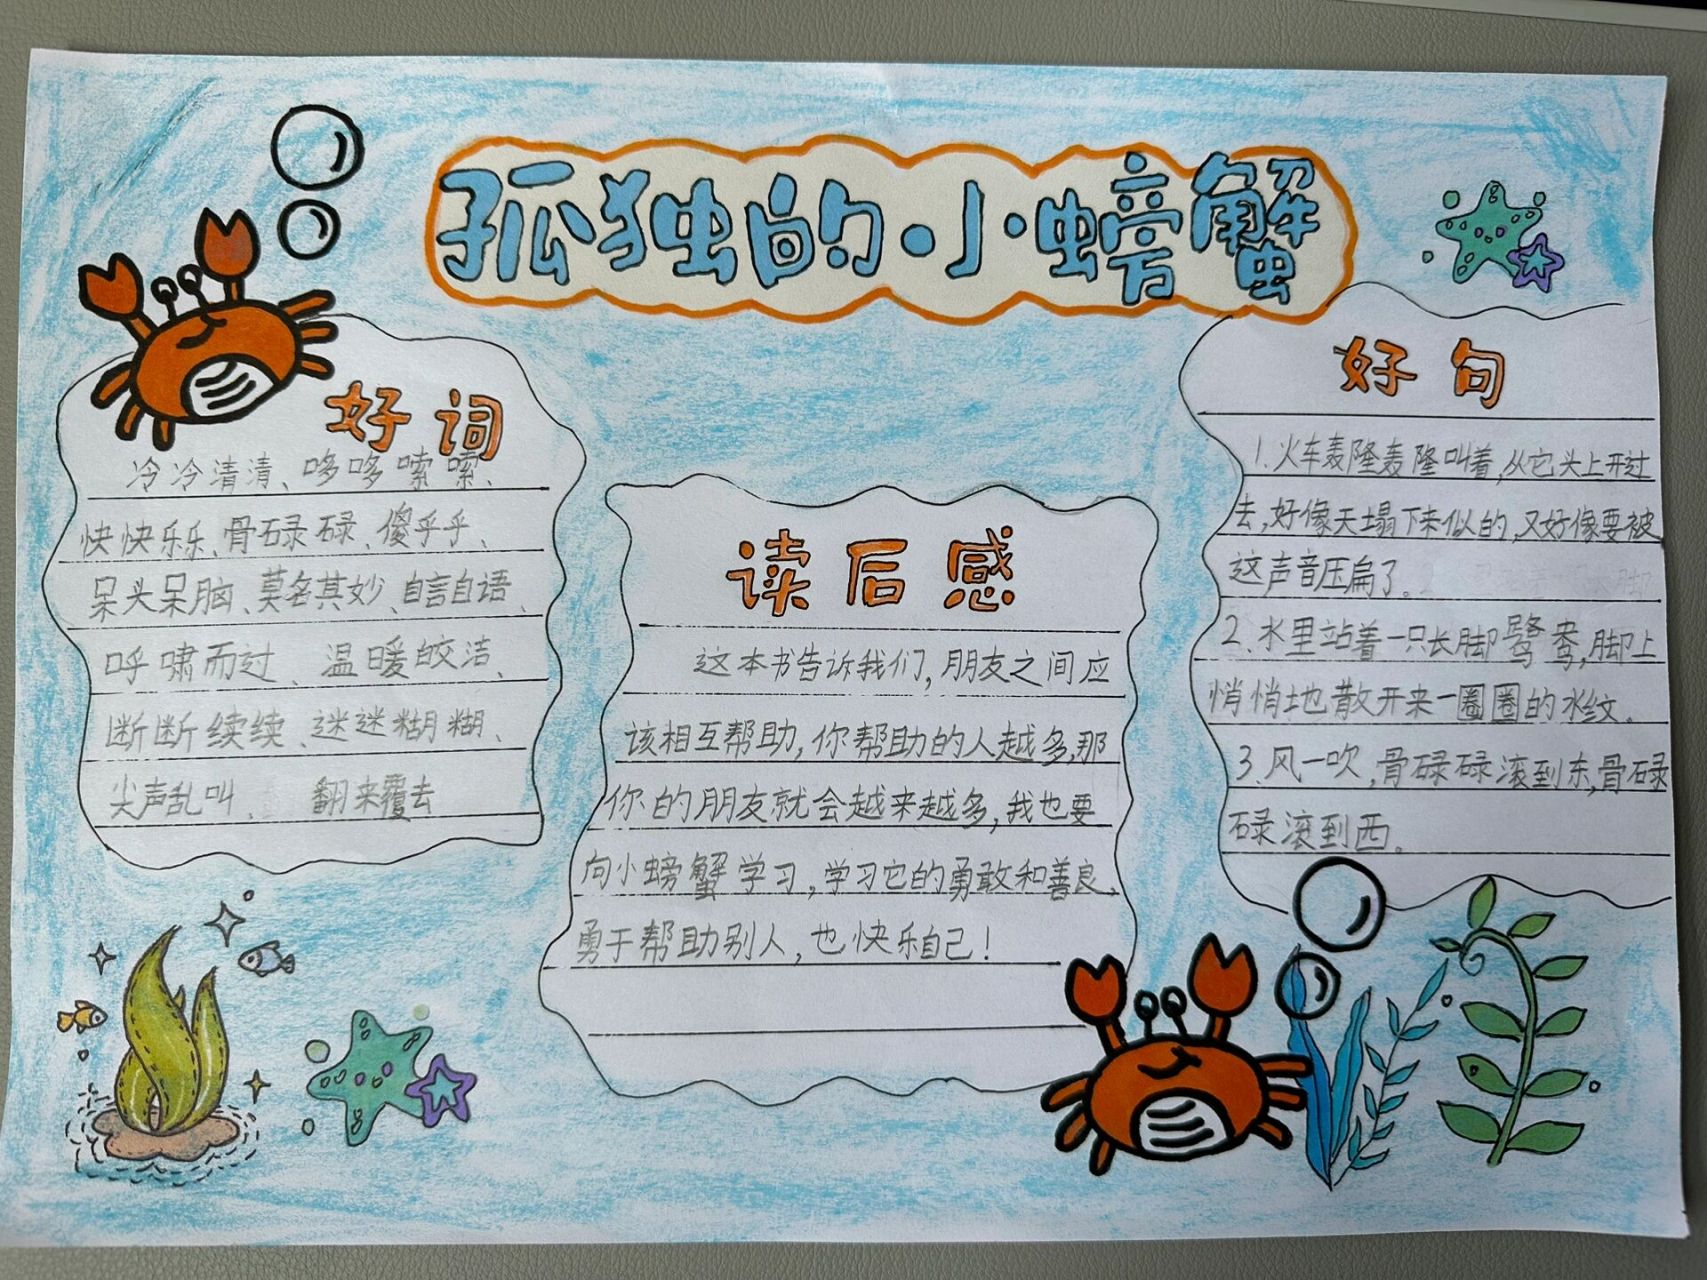 孤独的小螃蟹
好词
冷冷清清、哆哆嗦嗦、
快快乐乐、骨碌碌、傻乎乎、
呆头呆脑、莫名其妙、自言自语、
呼啸而过、温暖皎洁、
断断续续、迷迷糊糊、
尖声乱叫、翻来覆去
读后感
这本书告诉我们,朋友之间应
该相互帮助,你帮助的人越多,那
你的朋友就会越来越多,我也要
向小螃蟹学习,学习它的勇敢和善良,
勇于帮助别人,也快乐自己!
好句
1.火车轰隆轰隆叫着,从它头上开过
去,好像天塌下来似的,又好像要被
这声音压扁了。
2.水里站着一只长脚鹭鸶,脚上
悄悄地散开来一圈圈的水纹。
3.风一吹,骨碌碌滚到东,骨碌
碌滚到西。